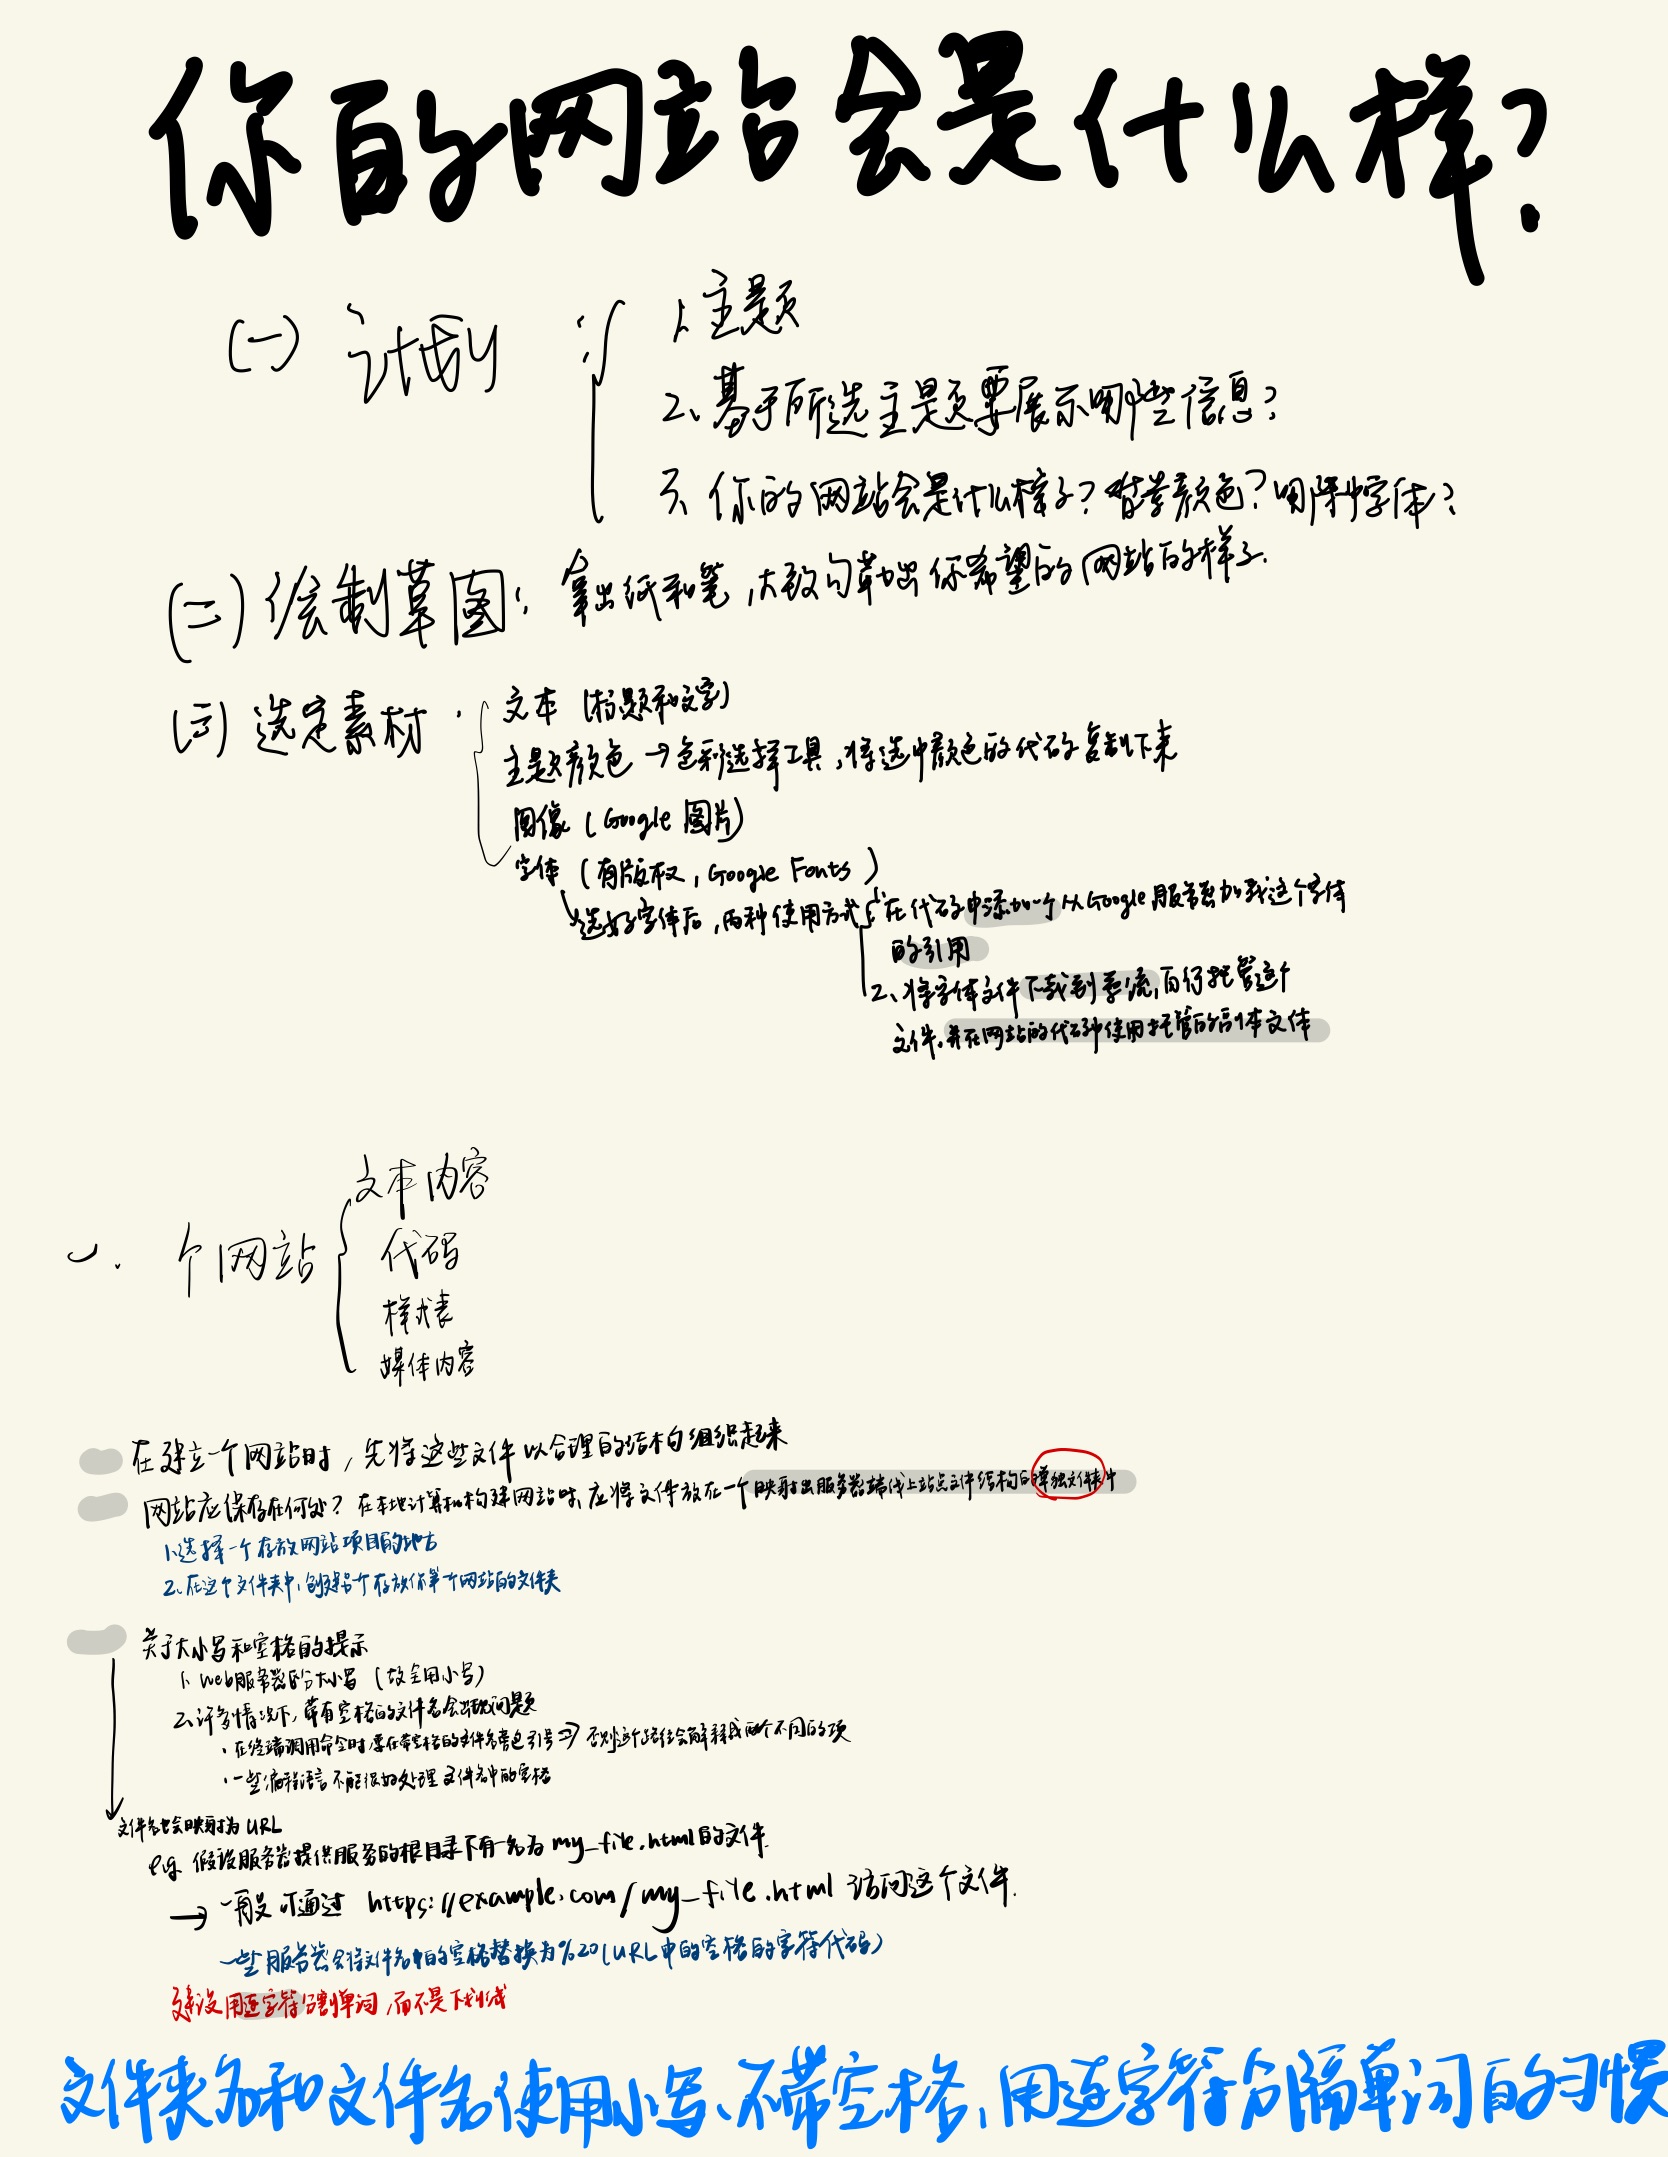 你的网站会是什么样?
(一) 计划:
1、主题
2、基于所选主题要展示哪些信息?
3、你的网站会是什么样子?背景颜色?用哪种字体?
(二) 绘制草图: 拿出纸和笔,大致勾勒出你希望的网站的样子.
(三) 选定素材:
文本 (标题和文字)
主题颜色 → 色彩选择工具,将选中颜色的代码复制下来
图像 (Google 图片)
字体 (有版权, Google Fonts)
选好字体后,两种使用方式
1、在代码中添加一个从Google服务器加载这个字体
的引用
2、将字体文件下载到系统,自行托管这个
文件.并在网站的代码中使用托管的副本文体
一. 个网站
文本内容
代码
样式表
媒体内容
在建立一个网站时,先将这些文件以合理的结构组织起来
网站应保存在何处? 在本地计算机构建网站时,应将文件放在一个映射出服务器端线上站点文件结构的单独文件夹中
1、选择一个存放网站项目的地方
2、在这个文件夹中,创建另个存放你第一个网站的文件夹
关于大小写和空格的提示
1、Web服务器区分大小写 (故全用小写)
2、许多情况下,带有空格的文件名会出现问题
· 在终端调用命令时要在带空格的文件名旁包引号 => 否则这个路径会解释成两个不同的项
· 一些编程语言不能很好处理文件名中的空格
文件名也会映射为 URL
e.g. 假设服务器提供服务的根目录下有一名为 my_file.html的文件.
→ 一般可通过 https://example.com/my_file.html 访问这个文件.
一些服务器会将文件名中的空格替换为%20(URL中的空格的字符代码)
建议用连字符分割单词,而不是下划线
文件夹名和文件名使用小写、不带空格,用连字符分隔单词的习惯